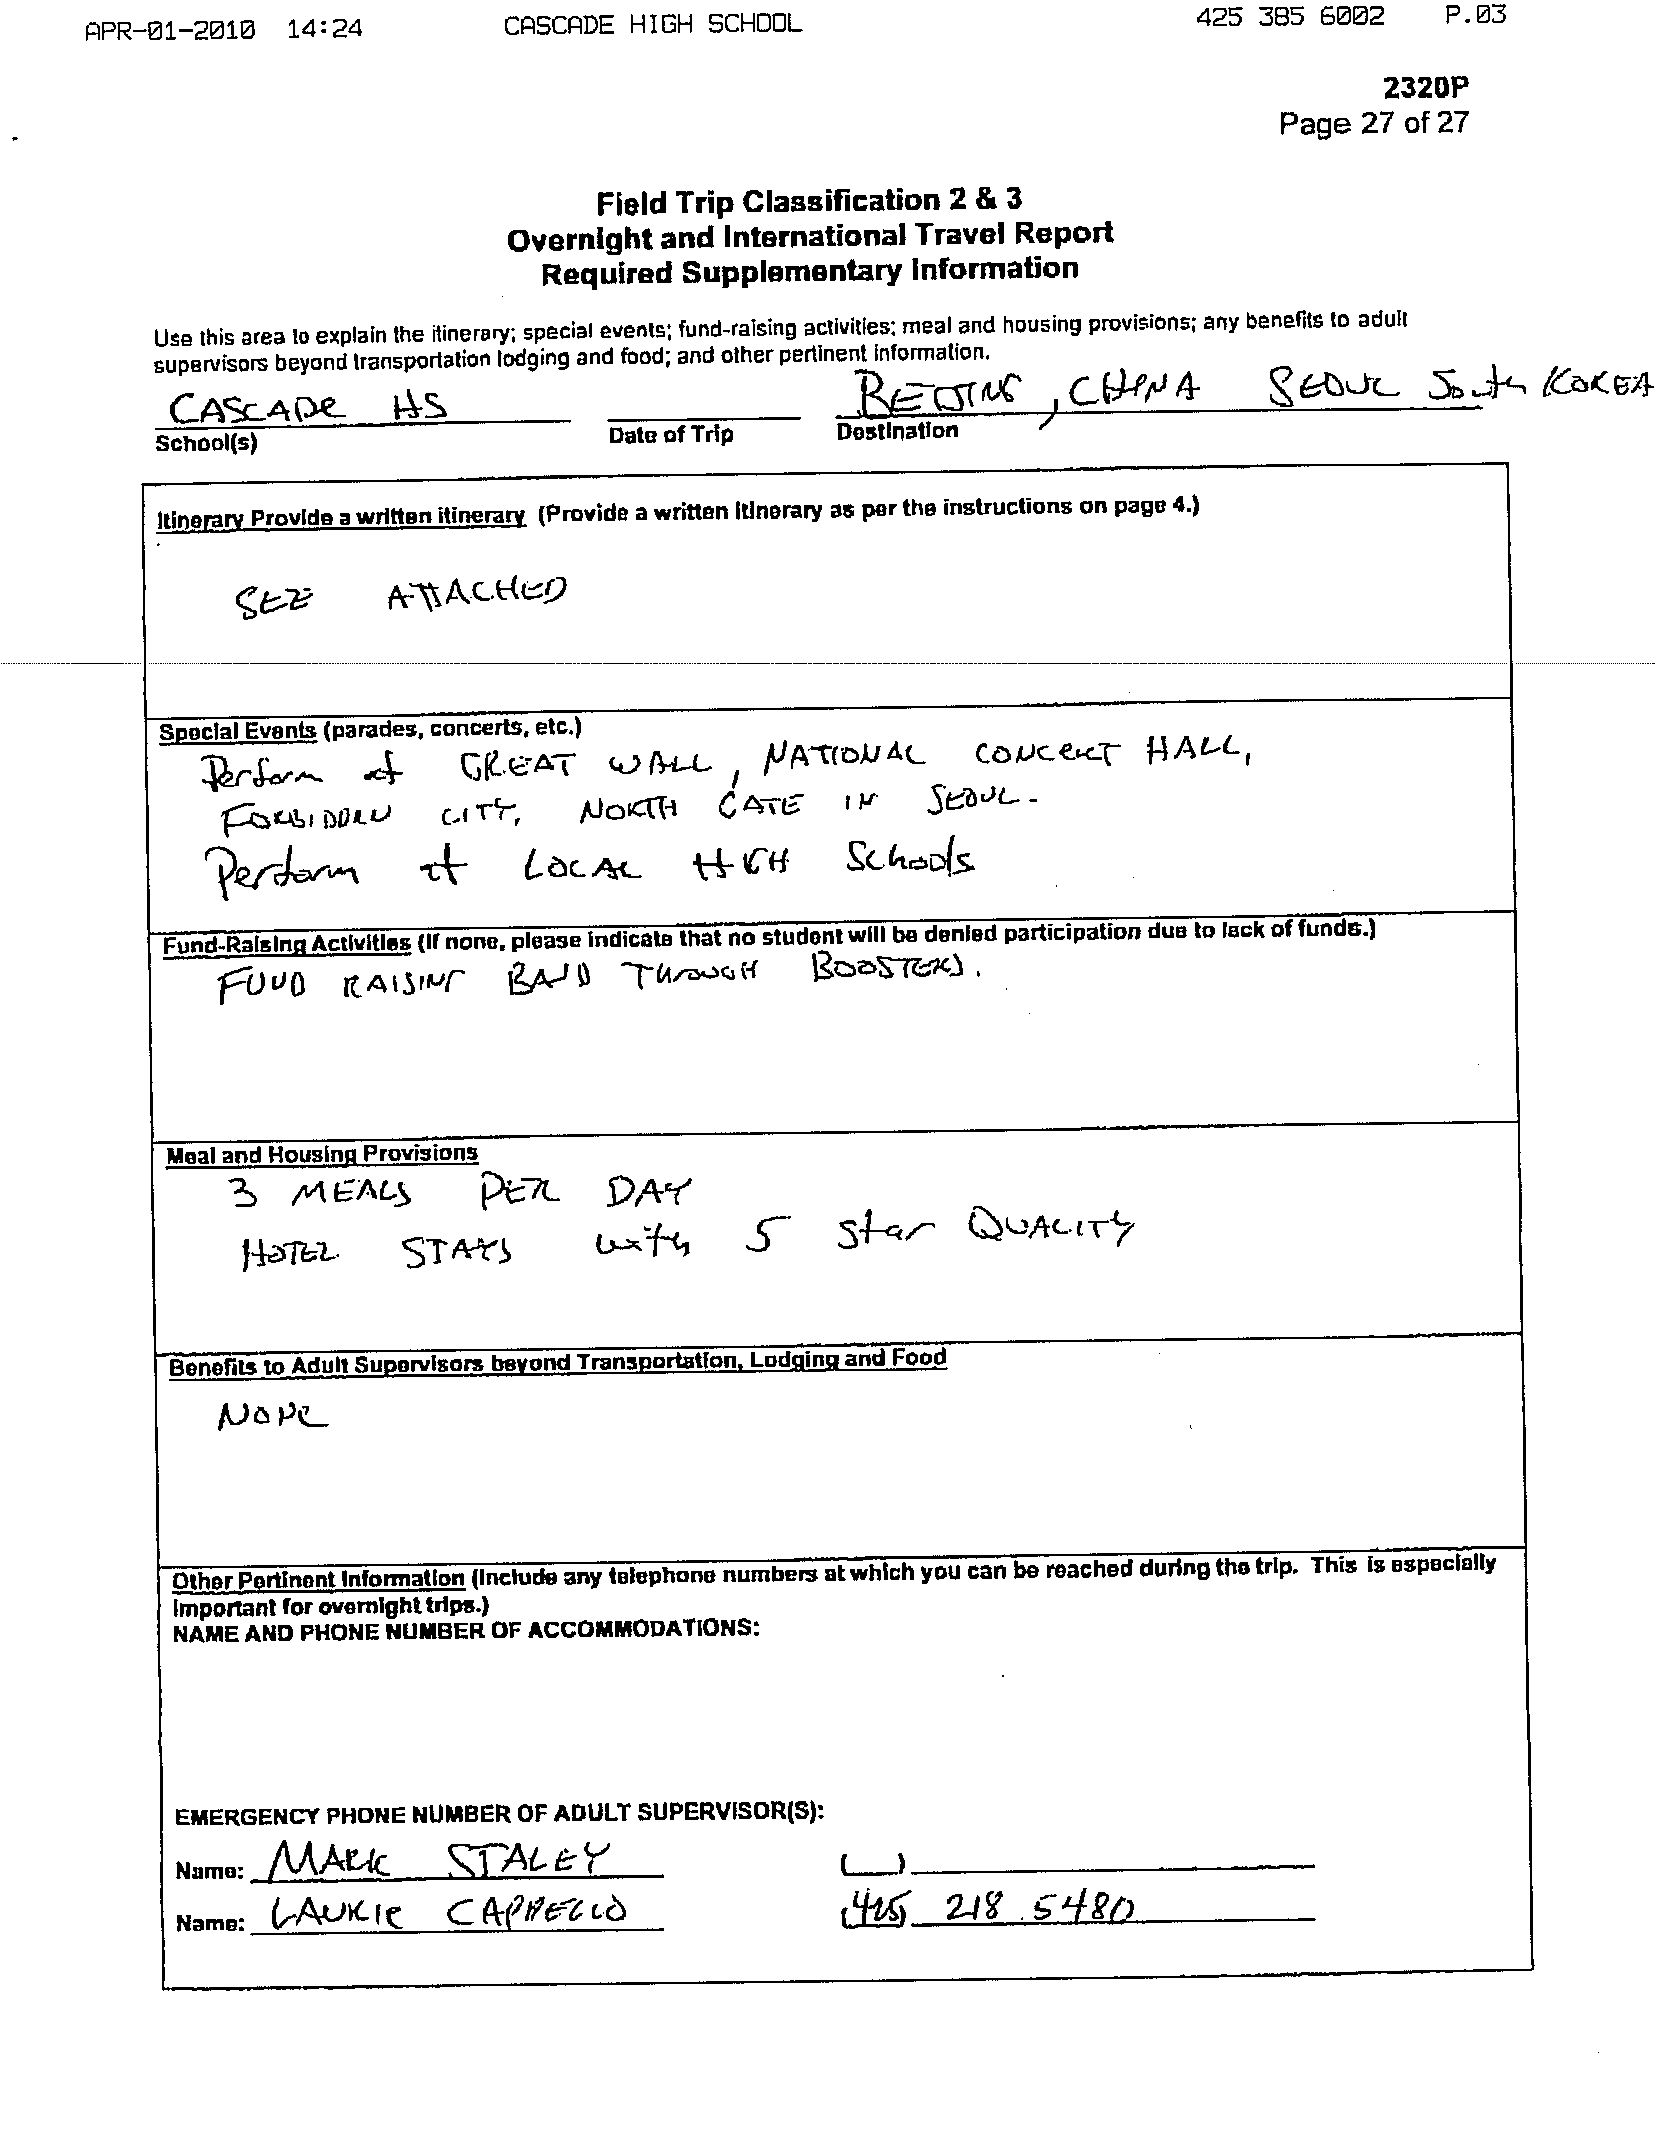 APR-01-2010 14:24 CASCADE HIGH SCHOOL 425 385 6002 P.03
2320P
Page 27 of 27
Field Trip Classification 2 & 3
Overnight and International Travel Report
Required Supplementary Information
Use this area to explain the itinerary; special events; fund-raising activities; meal and housing provisions; any benefits to adult
supervisors beyond transportation lodging and food; and other pertinent information.
CASCADE HS BEIJING, CHINA SEOUL South KOREA
School(s) Date of Trip Destination
Itinerary Provide a written itinerary (Provide a written itinerary as per the instructions on page 4.)
SEE ATTACHED
Special Events (parades, concerts, etc.)
Perform at GREAT WALL, NATIONAL CONCERT HALL,
FORBIDDEN CITY, NORTH GATE IN SEOUL.
Perform at LOCAL HIGH Schools
Fund-Raising Activities (If none, please indicate that no student will be denied participation due to lack of funds.)
FUND RAISING BAND THROUGH BOOSTERS.
Meal and Housing Provisions
3 MEALS PER DAY
HOTEL STAYS with 5 star QUALITY
Benefits to Adult Supervisors beyond Transportation, Lodging and Food
NONE
Other Pertinent Information (Include any telephone numbers at which you can be reached during the trip. This is especially
important for overnight trips.)
NAME AND PHONE NUMBER OF ACCOMMODATIONS:
EMERGENCY PHONE NUMBER OF ADULT SUPERVISOR(S):
Name: MARK STALEY ( )
Name: LAURIE CAPPELLO (425) 218 5480